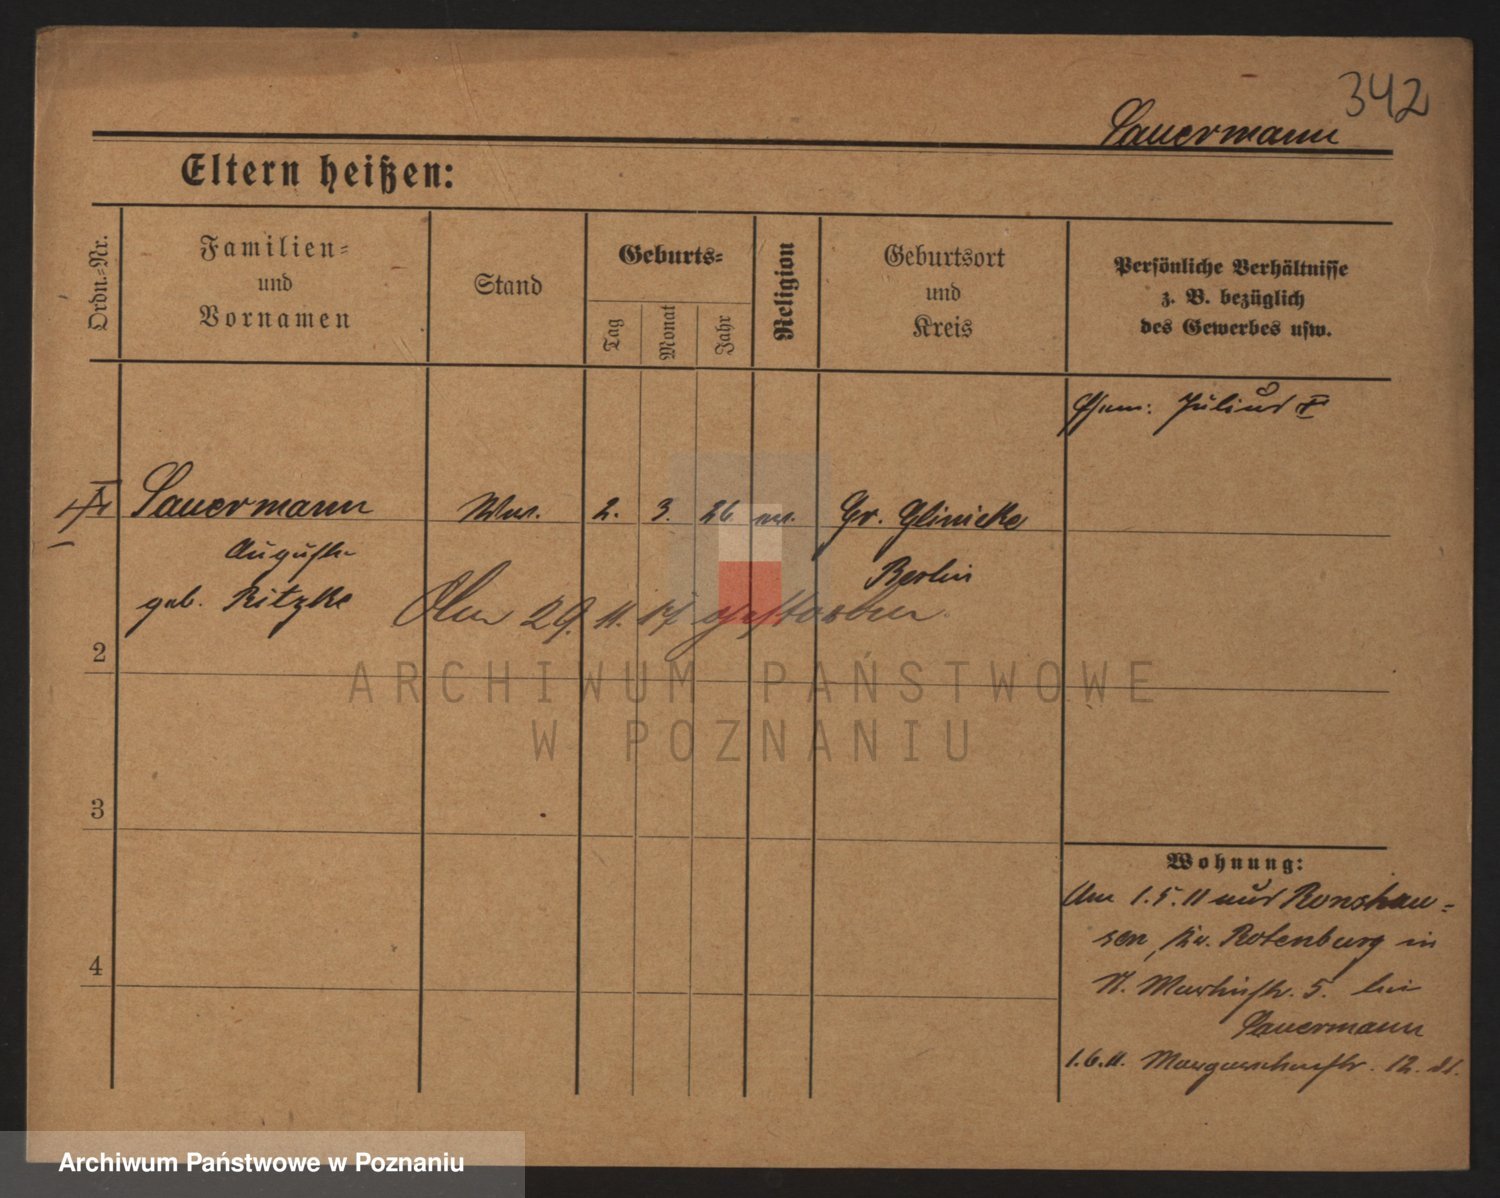 342
Sauermann
Eltern heißen:
Ordn.-Nr.
Familien-
und
Vornamen
Stand
Geburts-
Tag
Monat
Jahr
Religion
Geburtsort
und
Kreis
Persönliche Verhältnisse
z. B. bezüglich
des Gewerbes usw.
Ehem: Julius
Sauermann Ww. 2. 3. 26 ev. Gr. Glinicke
Auguste
Berlin
geb. Ritzke
Am 29. 11. 17 gestorben.
2
3
4
Wohnung:
Am 1.5.11 aus Ronshau-
sen, Kr. Rotenburg in
St. Martinstr. 5. bei
Sauermann
1.6.11. Margarethenstr. 12.
ARCHIWUM PAŃSTWOWE
W POZNANIU
Archiwum Państwowe w Poznaniu